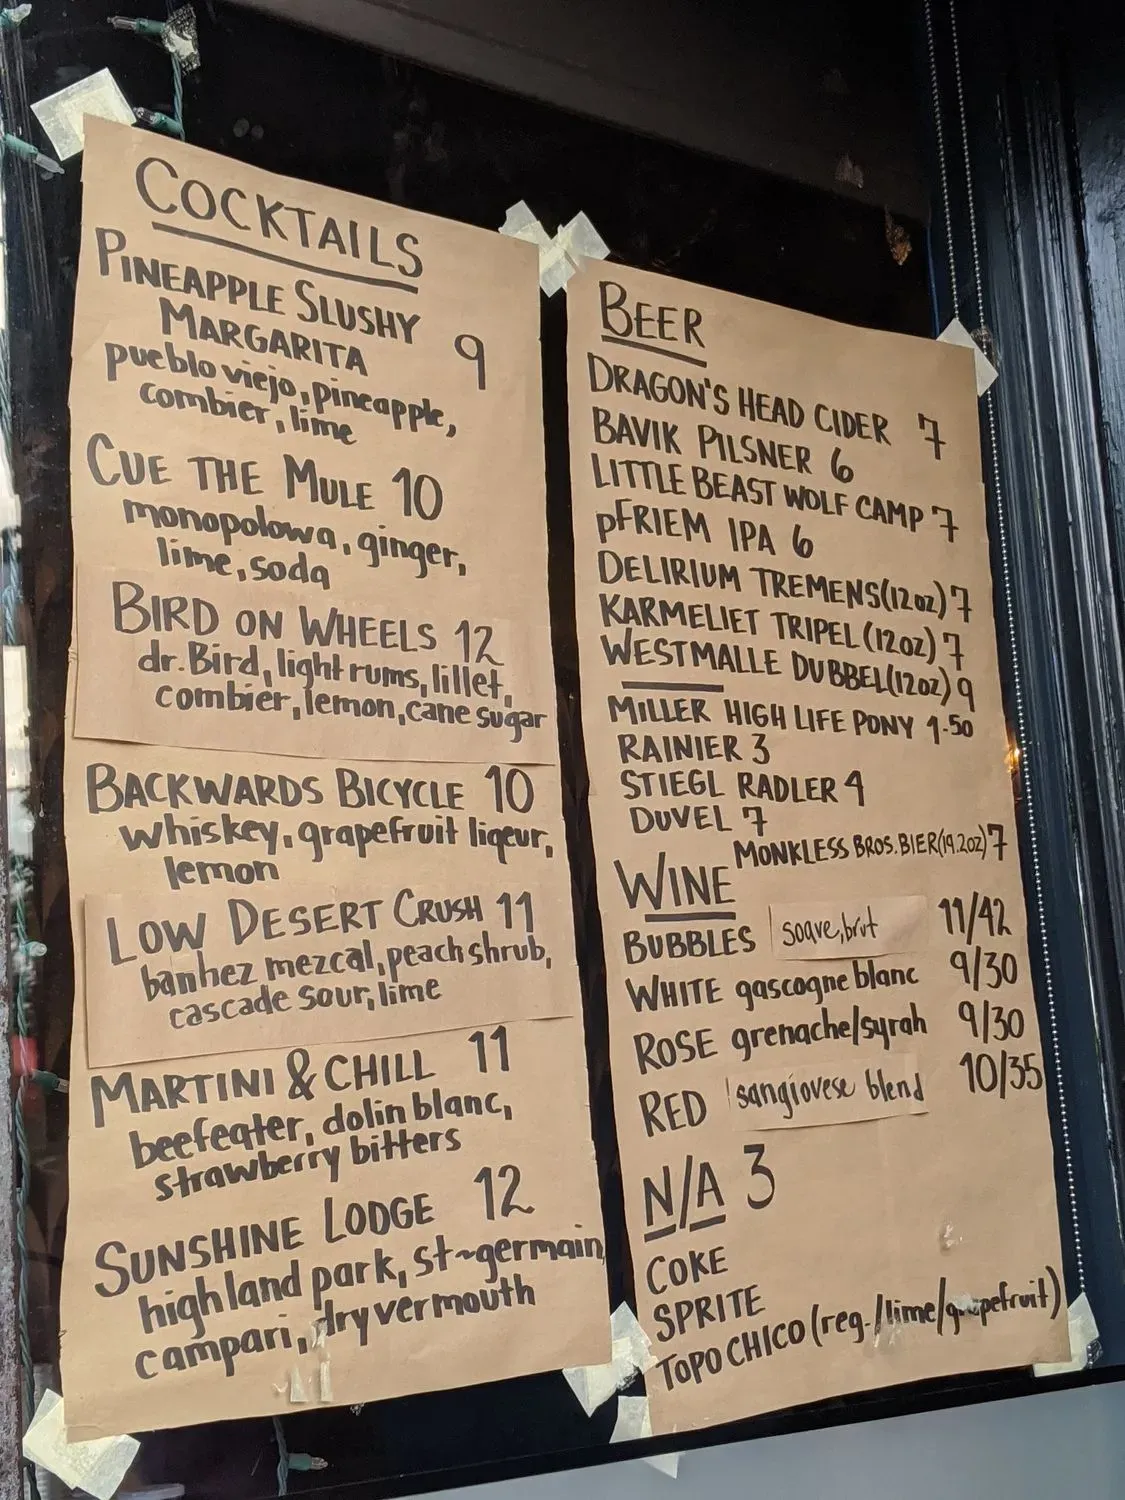 COCKTAILS
PINEAPPLE SLUSHY
MARGARITA 9
pueblo viejo, pineapple,
combier, lime
CUE THE MULE 10
monopolowa, ginger,
lime, soda
BIRD ON WHEELS 12
dr. Bird, light rums, lillet,
combier, lemon, cane sugar
BACKWARDS BICYCLE 10
whiskey, grapefruit liqeur,
lemon
LOW DESERT CRUSH 11
banhez mezcal, peach shrub,
cascade sour, lime
MARTINI & CHILL 11
beefeater, dolin blanc,
strawberry bitters
SUNSHINE LODGE 12
highland park, st~germain,
campari, dry vermouth
BEER
DRAGON'S HEAD CIDER 7
BAVIK PILSNER 6
LITTLE BEAST WOLF CAMP 7
pFRIEM IPA 6
DELIRIUM TREMENS (12oz) 7
KARMELIET TRIPEL (12oz) 7
WESTMALLE DUBBEL (12oz) 9
MILLER HIGH LIFE PONY 1.50
RAINIER 3
STIEGL RADLER 4
DUVEL 7
MONKLESS BROS. BIER (19.2oz) 7
WINE
BUBBLES soave, brut 11/42
WHITE gascogne blanc 9/30
ROSE grenache/syrah 9/30
RED sangiovese blend 10/35
N/A 3
COKE
SPRITE
TOPO CHICO (reg./lime/grapefruit)